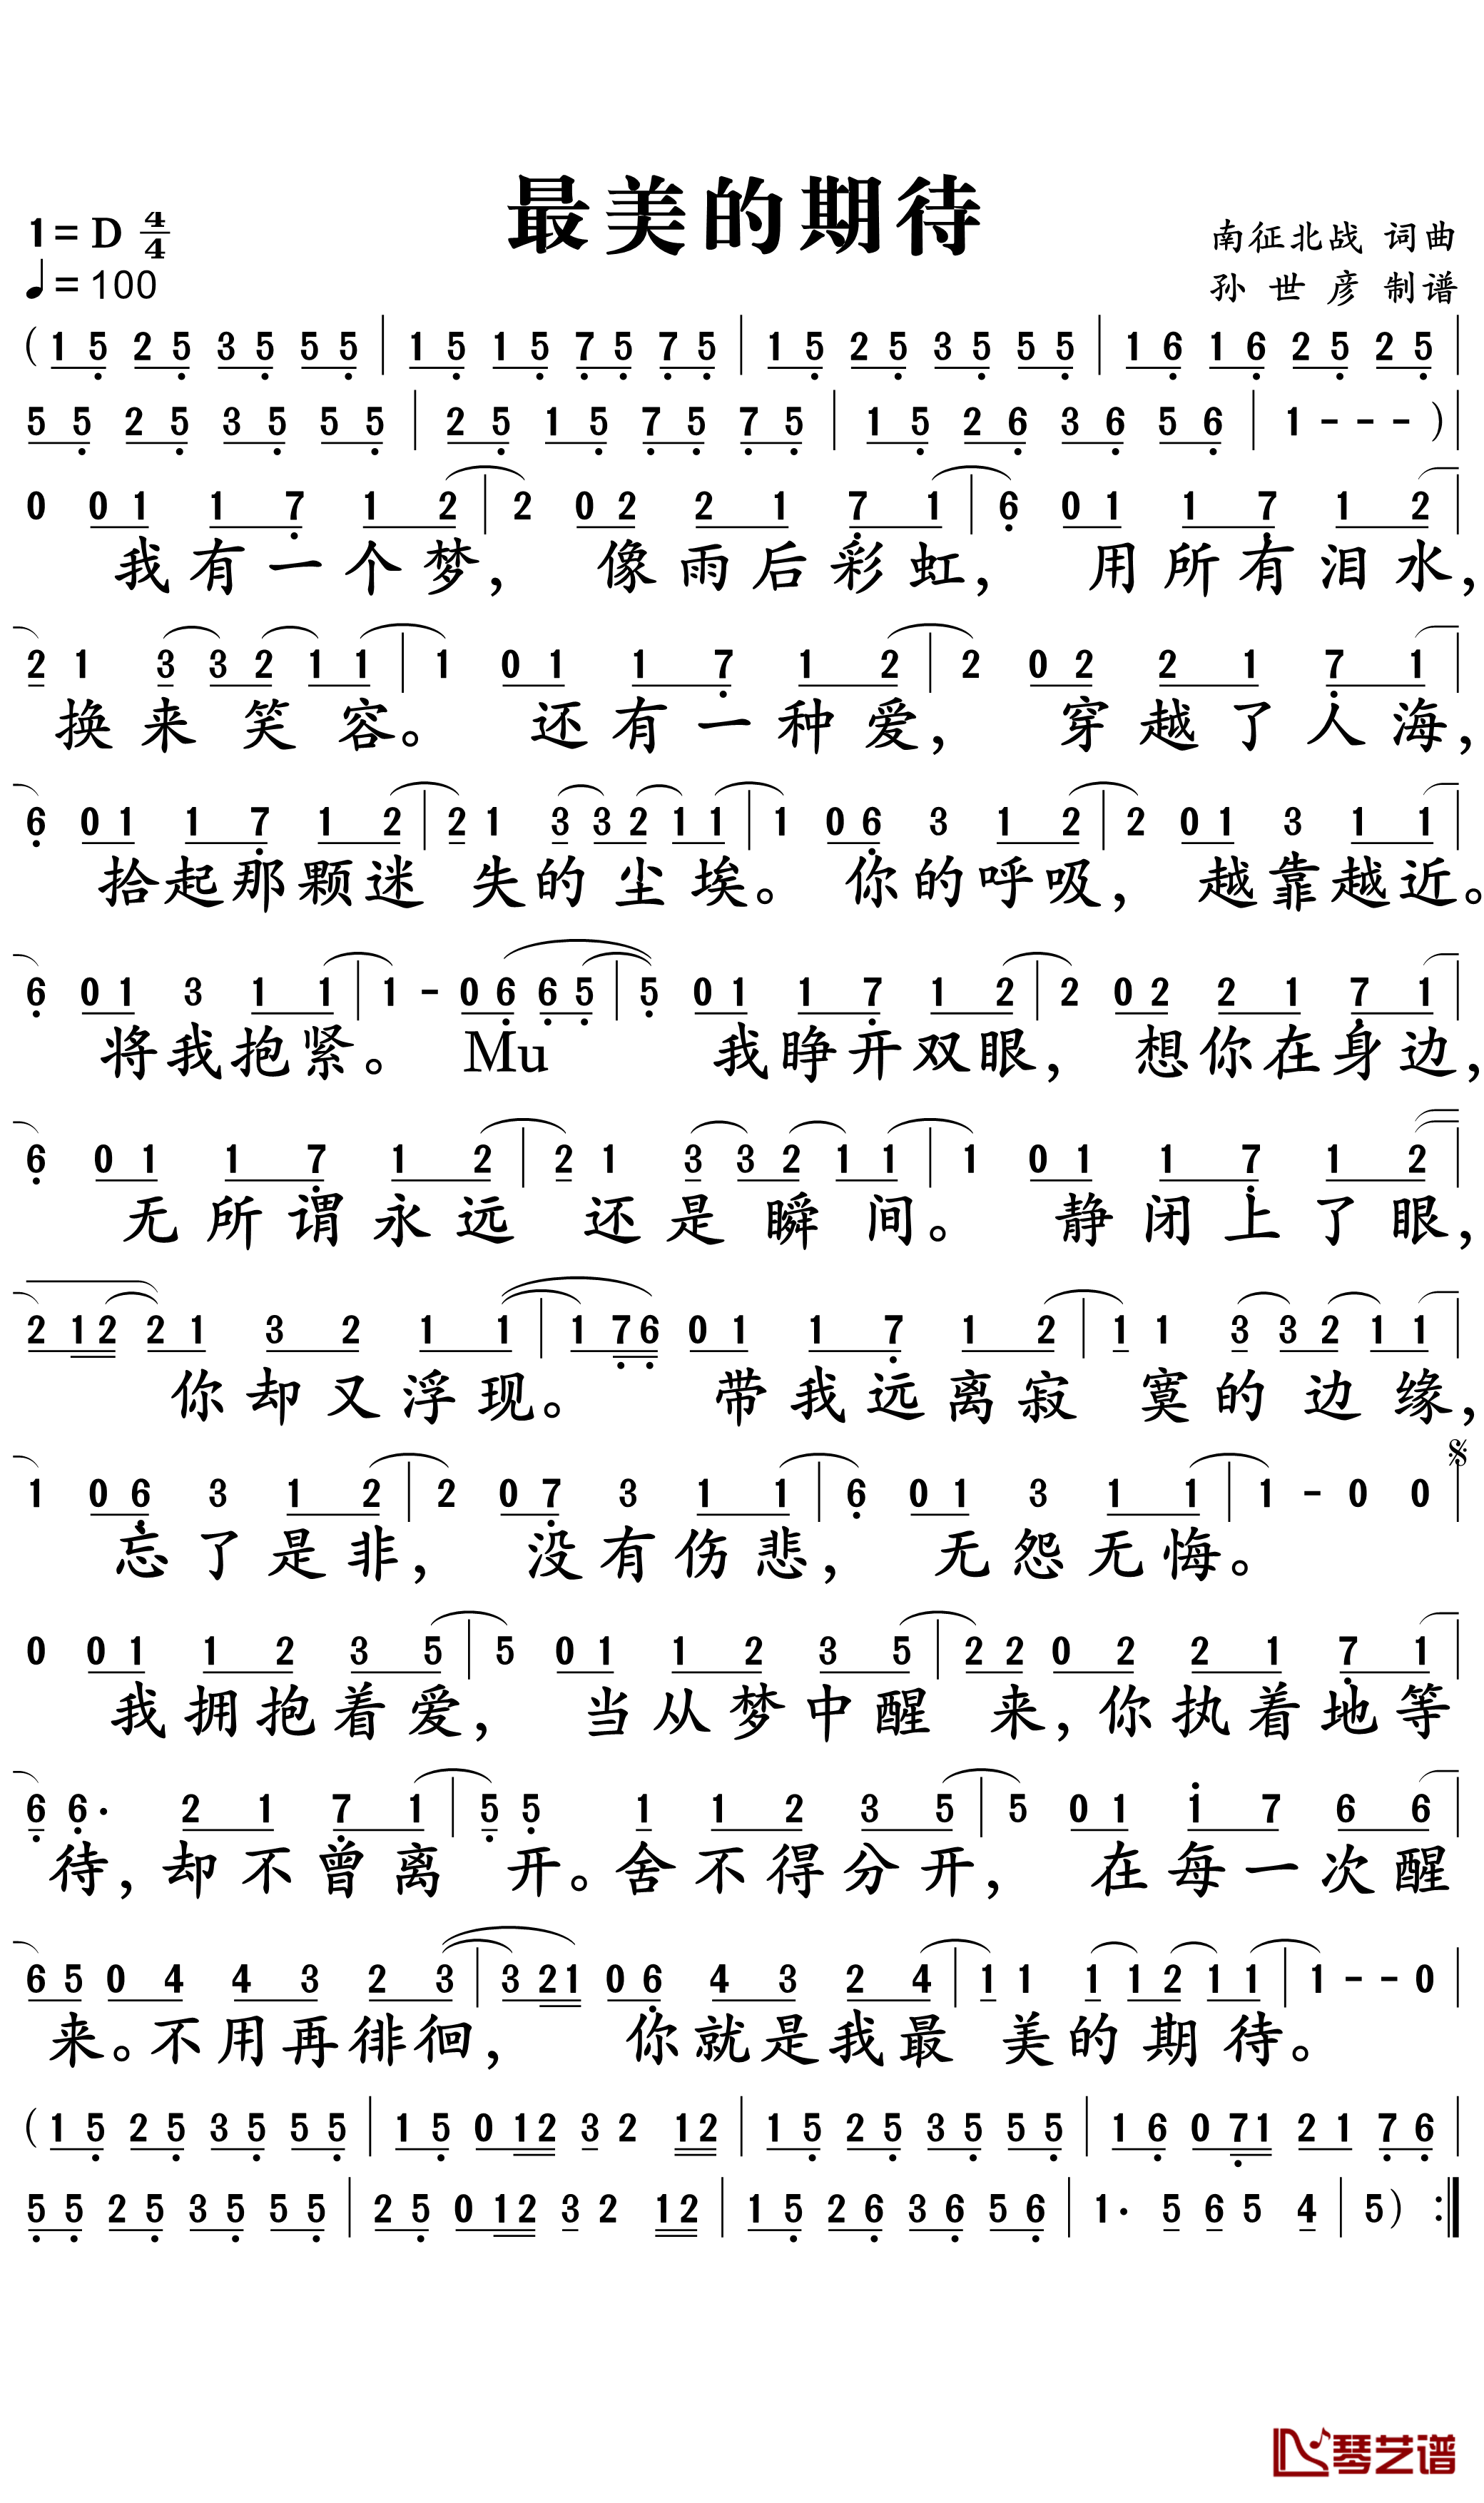 最美的期待
1=D 4/4
♩=100
南征北战 词曲
孙世彦 制谱
(15 25 35 55|15 15 75 75|15 25 35 55|16 16 25 25|
55 25 35 55|25 15 75 75|15 26 36 56|1---)|
0 01 17 12|2 02 21 71|6 01 17 12|
我有一个梦， 像雨后彩虹， 用所有泪水，
2 1 3 32 11|1 01 17 12|2 02 21 71|
换来笑容。 还有一种爱， 穿越了人海，
6 01 17 12|2 1 3 32 11|1 06 3 12|2 01 3 11|
拾起那颗迷失的尘埃。 你的呼吸， 越靠越近。
6 01 3 11|1 - 06 65|5 01 17 12|2 02 21 71|
将我抱紧。 Mu 我睁开双眼， 想你在身边，
6 01 17 12|2 1 3 32 11|1 01 17 12|
无所谓永远还是瞬间。 静闭上了眼，
212 21 32 11|176 01 17 12|1 1 3 32 11|
你却又浮现。 带我远离寂寞的边缘，
1 06 3 12|2 07 3 11|6 01 3 11|1 - 0 0
忘了是非， 没有伤悲， 无怨无悔。
0 01 12 35|5 01 12 35|22 02 21 71|
我拥抱着爱， 当从梦中醒来，你执着地等
6 6· 21 71|5 5 1 12 35|5 01 17 66|
待，却不曾离开。舍不得分开， 在每一次醒
65 04 43 23|321 06 43 24|1 1 1 12 11|1 - - 0|
来。不用再徘徊， 你就是我最美的期待。
(15 25 35 55|15 012 3 2 12|15 25 35 55|16 071 21 76|
55 25 35 55|25 012 3 2 12|15 26 36 56|1· 5 6 5 4|5) :||
琴艺谱